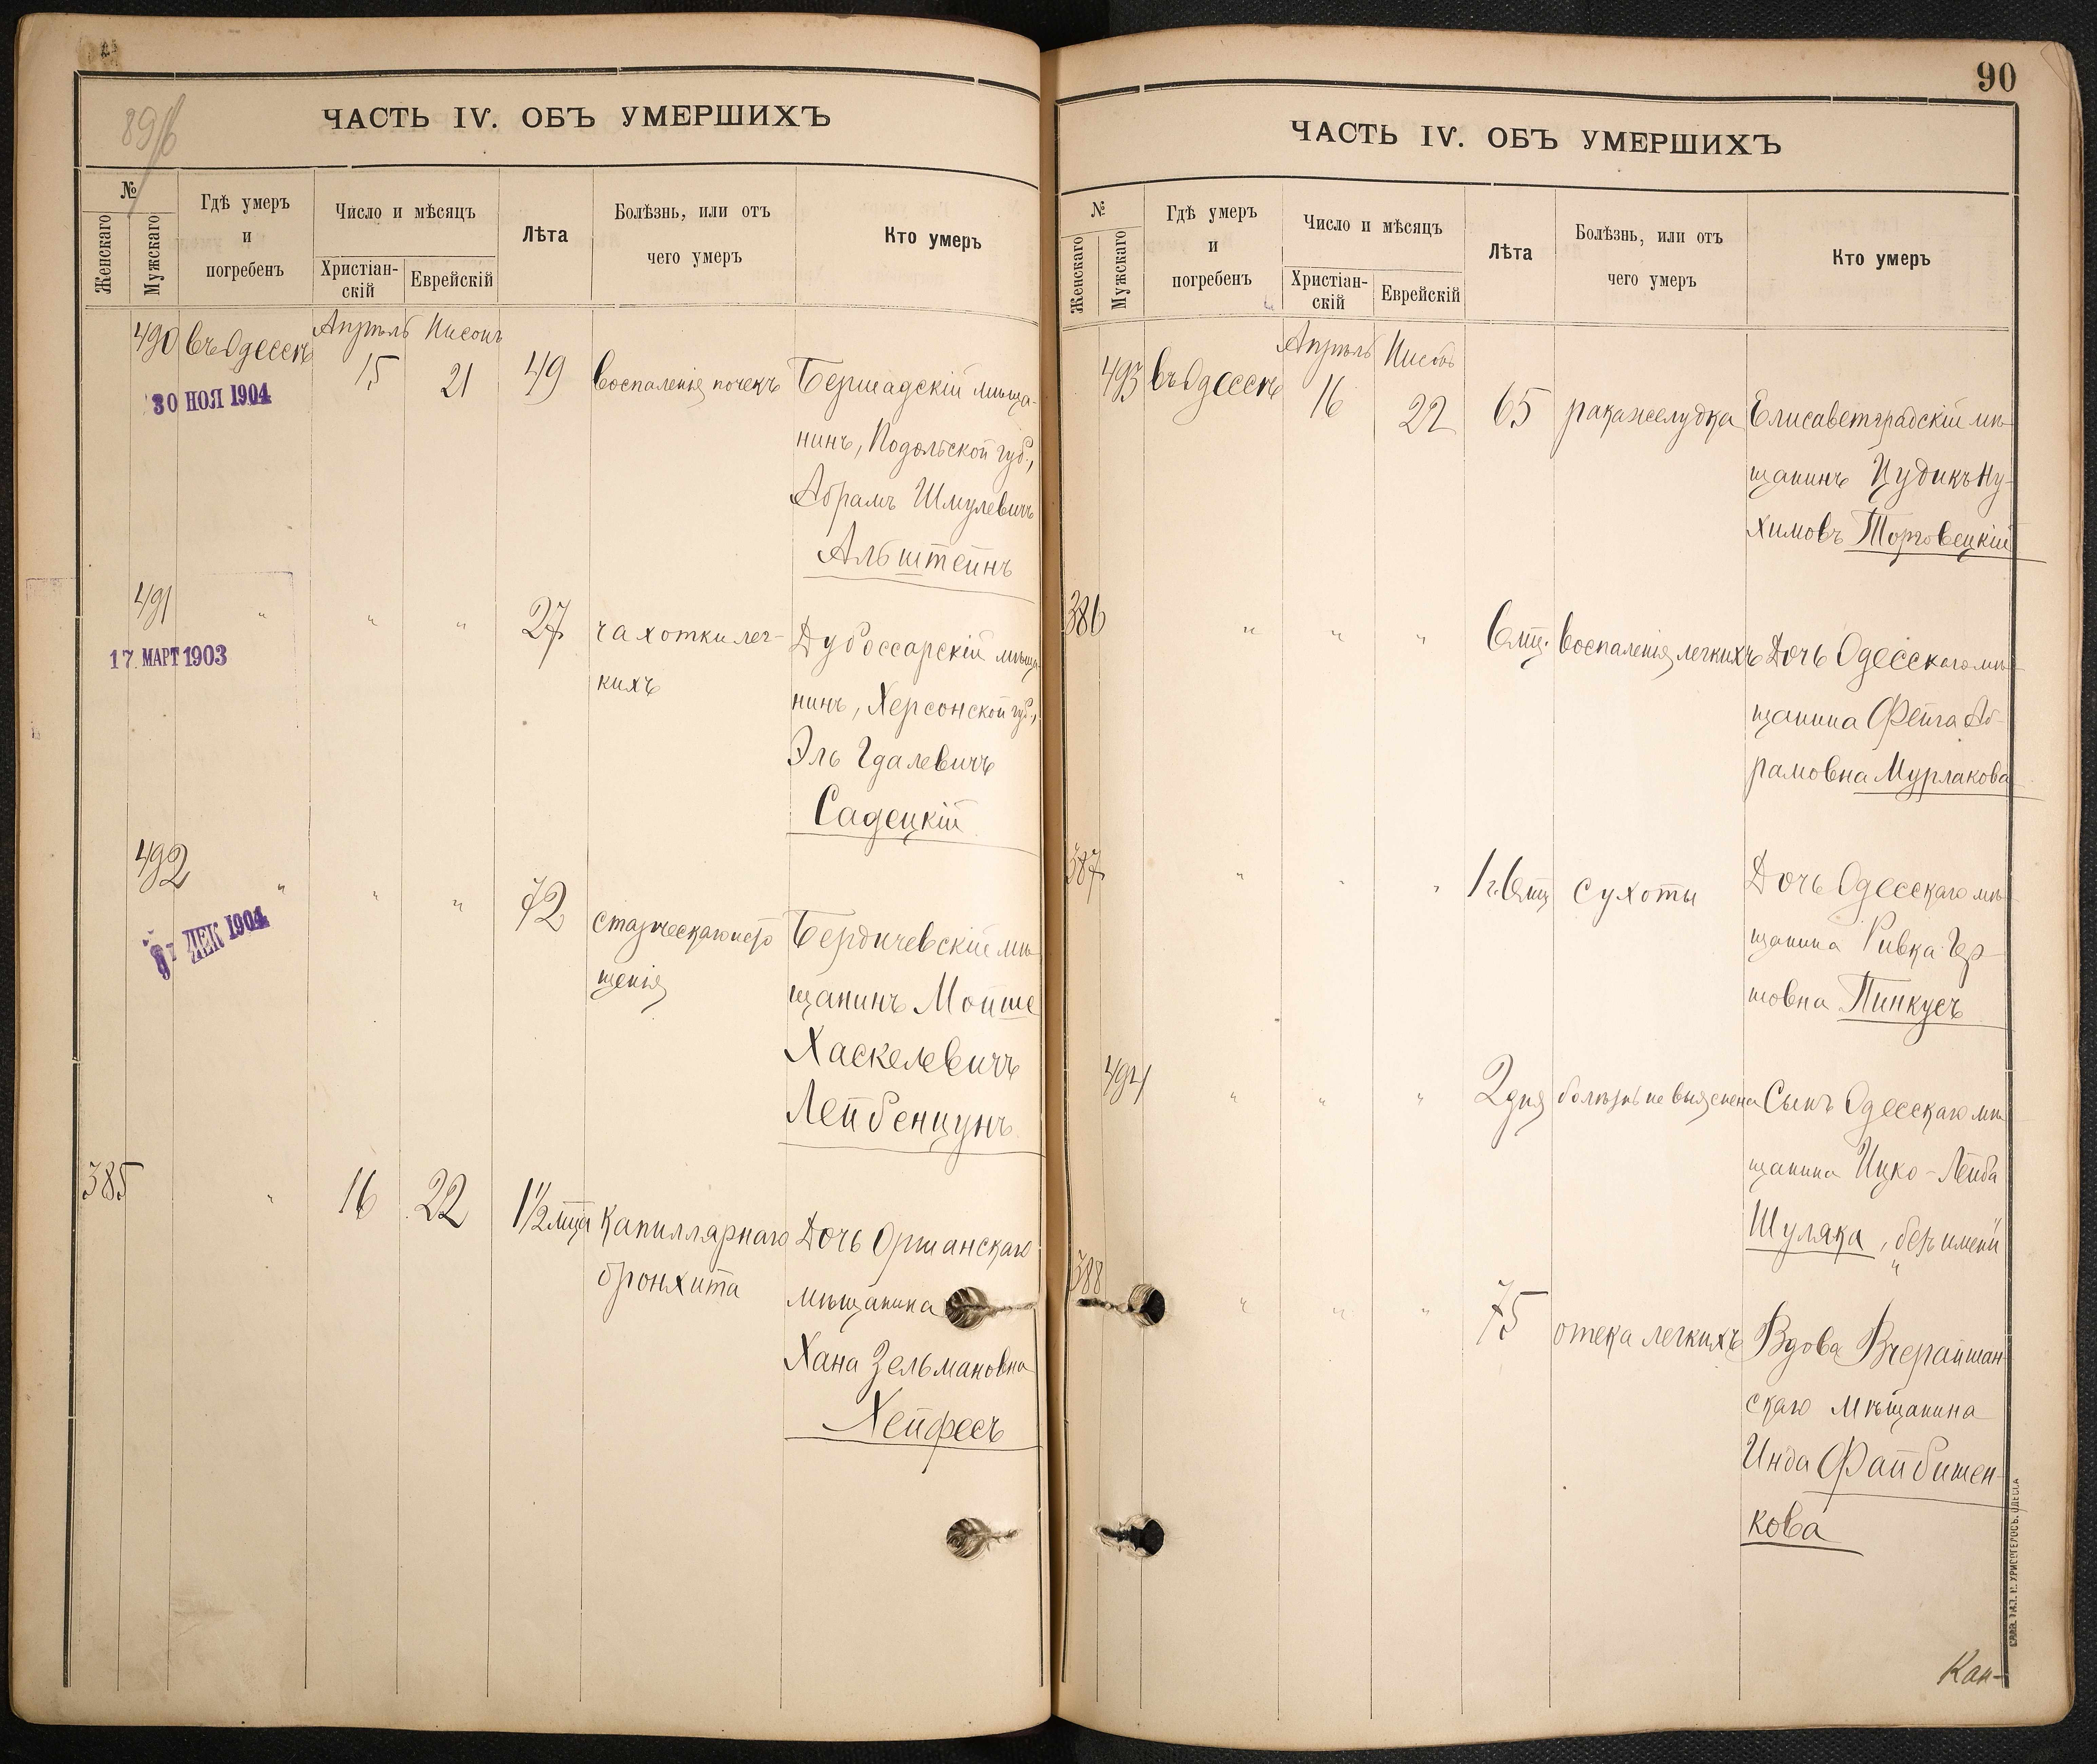 89/б
ЧАСТЬ IV. ОБЪ УМЕРШИХЪ
№
Женскаго
Мужскаго
Гдѣ умеръ
и
погребенъ
Число и мѣсяцъ
Христіан-
скій
Еврейскій
Лѣта
Болѣзнь, или отъ
чего умеръ
Кто умеръ
490 въ Одессѣ Апрѣль Нисонъ
15 21 49 воспаленія почекъ Бершадскій мѣща-
30 НОЯ 1904
нинъ, Подольской губ.,
Абрамъ Шмулевичъ
Альштейнъ
491 " " " 27 чахотки лег- Дубоссарскій мѣща-
17 МАРТ 1903
кихъ
нинъ, Херсонской губ.,
Эль Гдалевичъ
Садецкій
492 " " " 72 старческаго исто Бердичевскій мѣ-
ДЕК 1904
щенія
щанинъ Мойше
Хаскелевичъ
Лейбенцунъ
385 " 16 22 1½ мца капиллярнаго Дочь Оршанскаго
бронхита
мѣщанина
Хана Зельмановна
Хейфесъ
90
ЧАСТЬ IV. ОБЪ УМЕРШИХЪ
№
Женскаго
Мужскаго
Гдѣ умеръ
и
погребенъ
Число и мѣсяцъ
Христіан-
скій
Еврейскій
Лѣта
Болѣзнь, или отъ
чего умеръ
Кто умеръ
493 въ Одессѣ Апрѣль Нисонъ
16 22 65 рака желудка Елисаветградскій мѣ-
щанинъ Цудикъ Ну-
химовъ Торговецкій
386 " " " 6 мц. воспаленія легкихъ Дочь Одесскаго мѣ-
щанина Фейга Аб-
рамовна Мурлакова
387 " " " 1 г. 6 мц сухоты Дочь Одесскаго мѣ-
щанина Ривка Гер-
шовна Пинкусъ
494 " " " 2 дня болѣзнь не выяснена Сынъ Одесскаго мѣ
щанина Ицко-Лейба
Шуляка, „безъ имени"
388 " " " 75 отека легкихъ Вдова Вчерайшан-
скаго мѣщанина
Инда Файбишен-
кова
Кан-